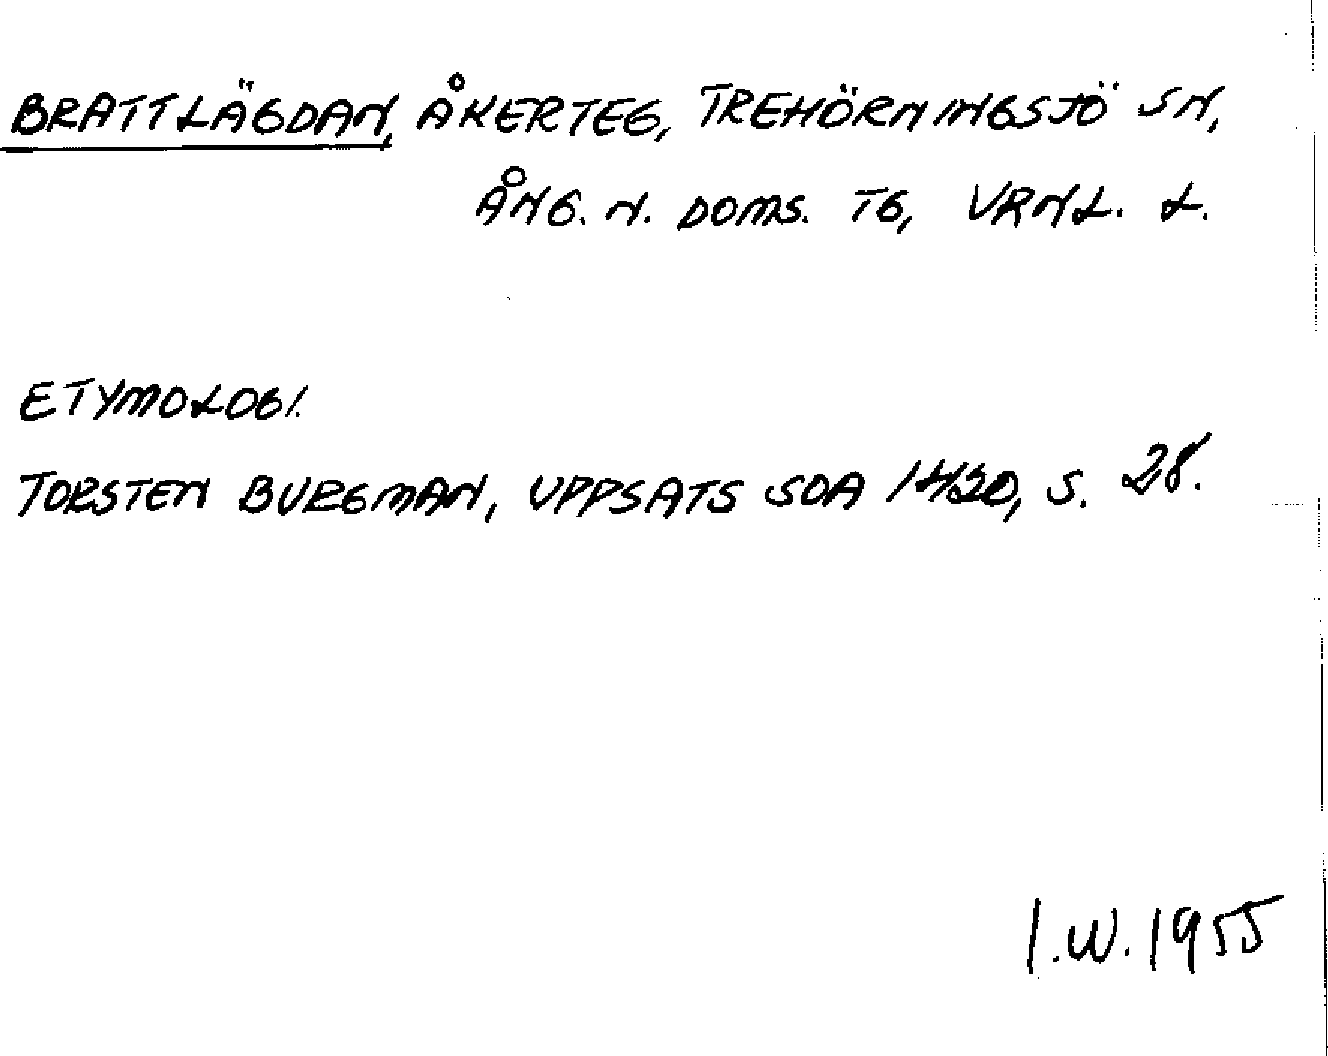 BRATTLÄGDAN, ÅKERTEG, TREHÖRNINGSJÖ SN,
ÅNG. N. DOMS. TG, VRNL. L.
ETYMOLOGI.
TORSTEN BURGMAN, UPPSATS SOA 1430, S. 28.
I.W. 1955